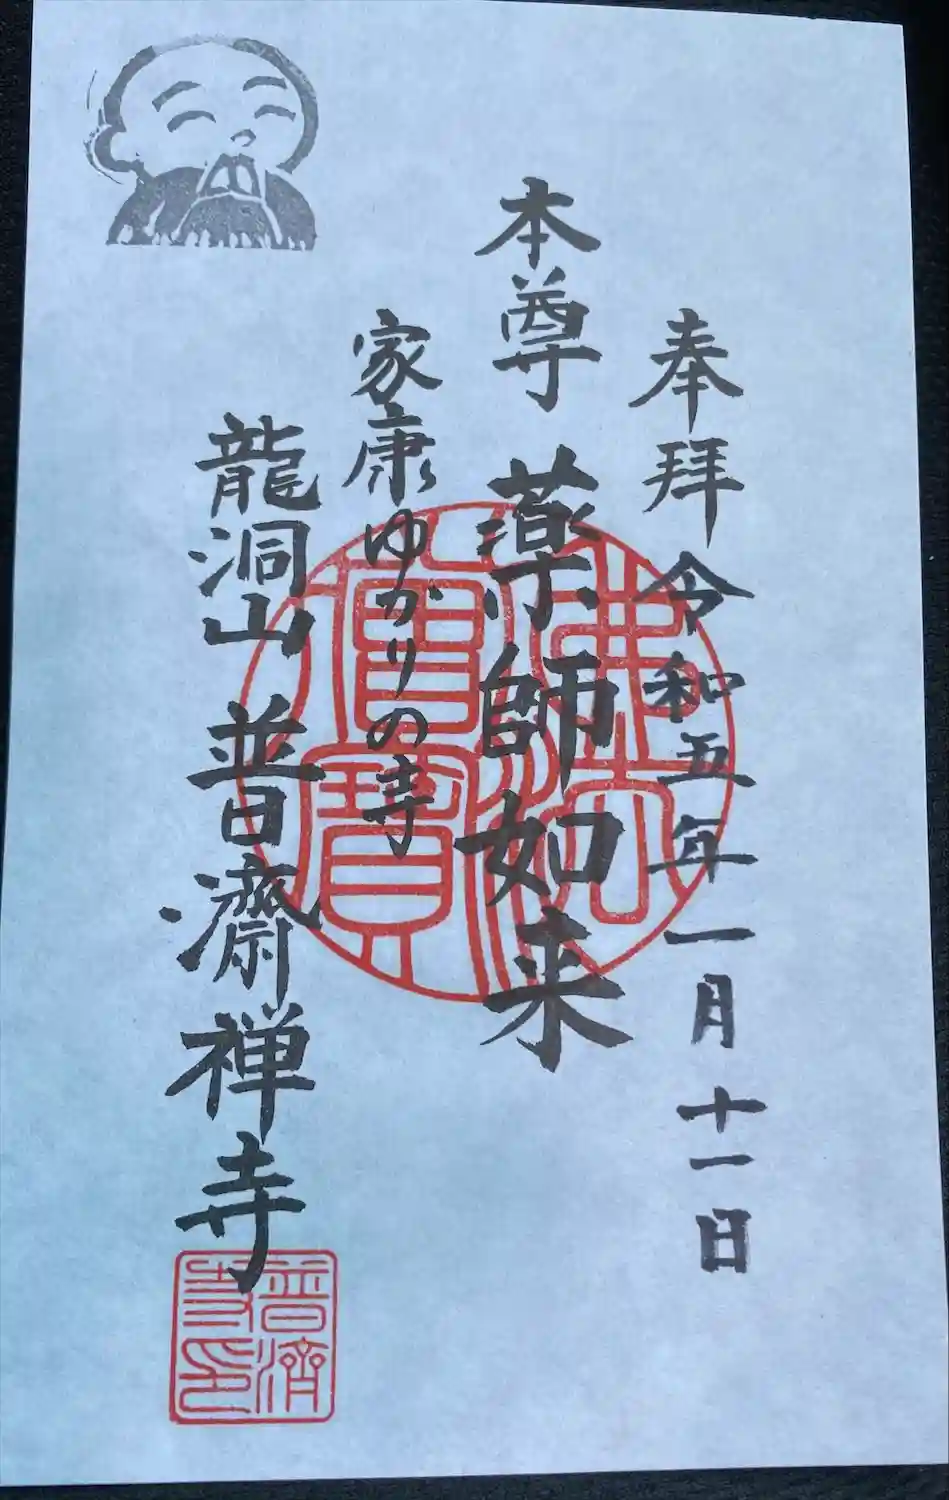 奉拝 令和五年一月十一日
本尊 薬師如来
家康ゆかりの寺
龍洞山 普濟禅寺
佛法僧寶
普濟寺印